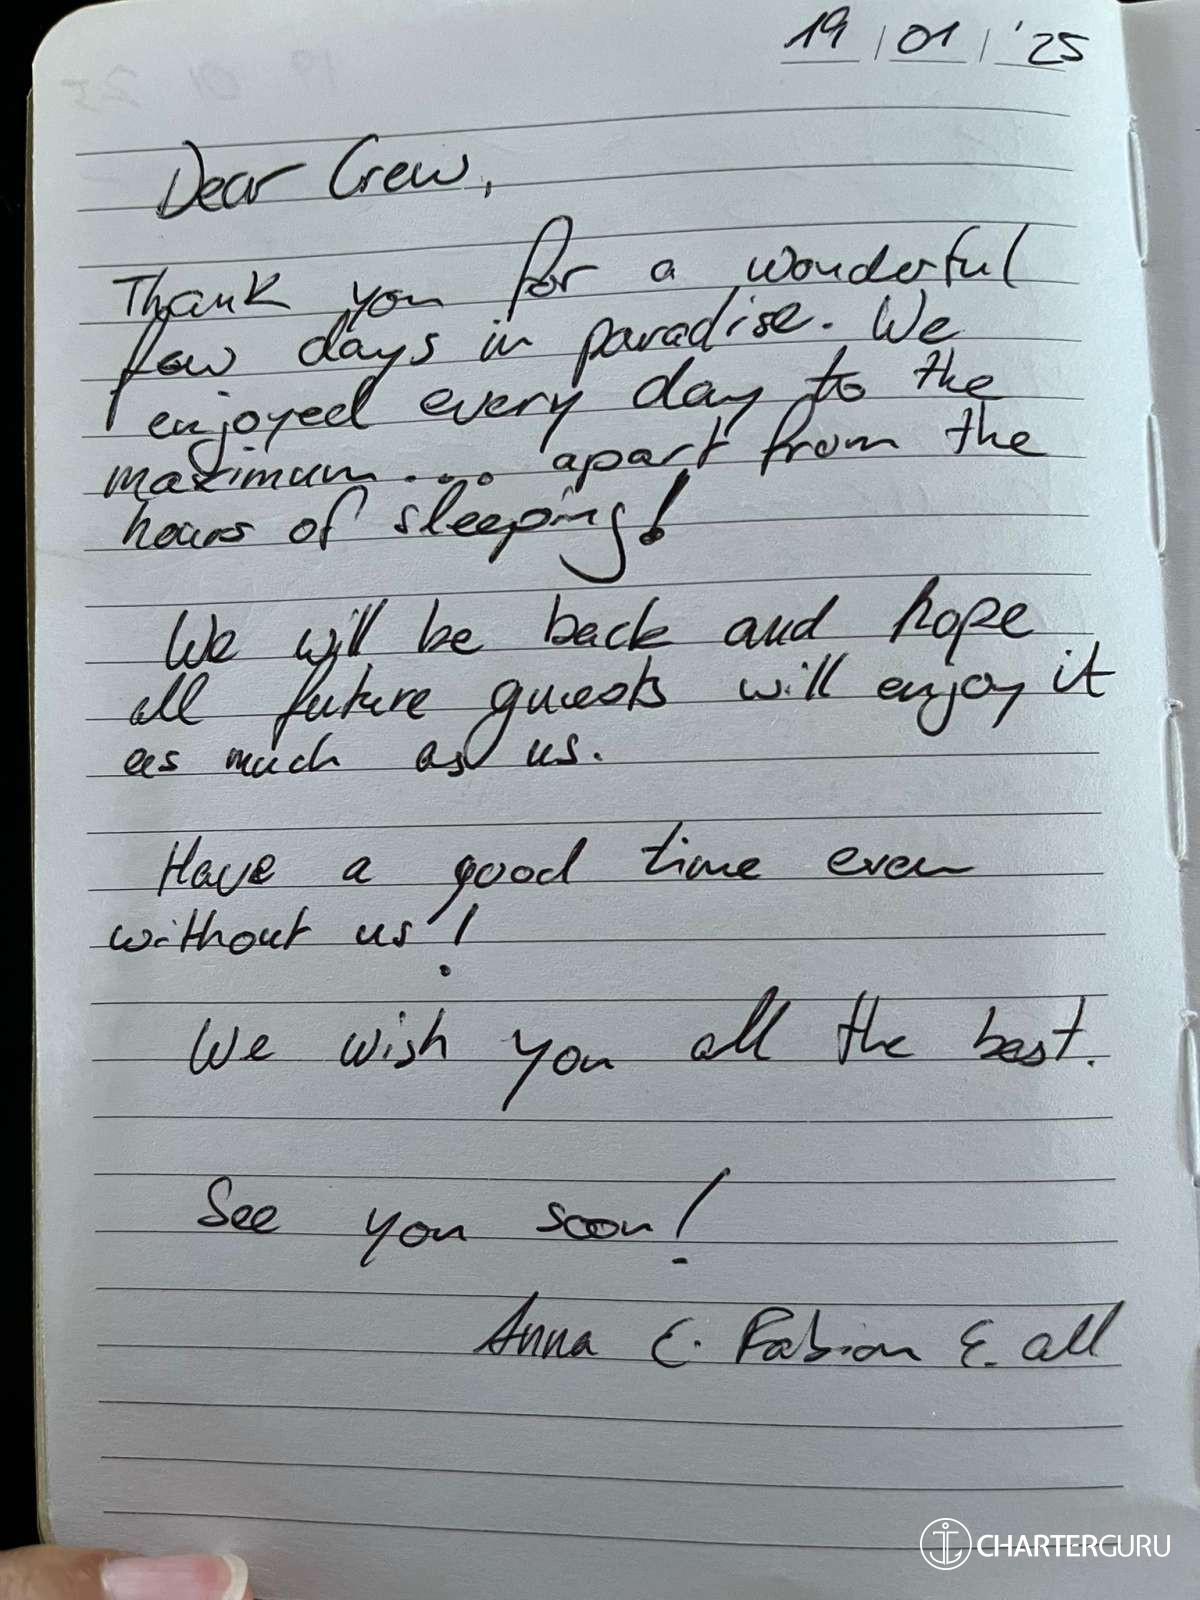 19 / 01 / '25
Dear Crew,
Thank you for a wonderful
few days in paradise. We
enjoyed every day to the
maximum.... apart from the
hours of sleeping!
We will be back and hope
all future guests will enjoy it
as much as us.
Have a good time even
without us!
We wish you all the best.
See you soon!
Anna &. Fabian &. all
CHARTERGURU